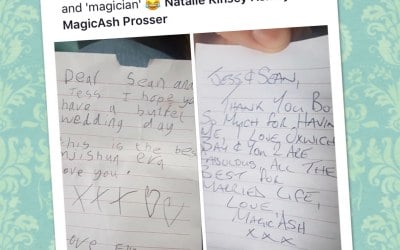 and 'magician' 😂 Natalie Kinsey
MagicAsh Prosser
Dear Sean and
Jess I hope you
have a
wedding day
this is the best
eva
love you.
XXX
JESS & SEAN,
THANK YOU BO
SO MUCH FOR HAVIN
ME, I LOVE
DAY & YOU 2 ARE
FABULOUS ALL THE
BEST FOR
MARRIED LIFE,
LOVE,
MAGICASH
x x x